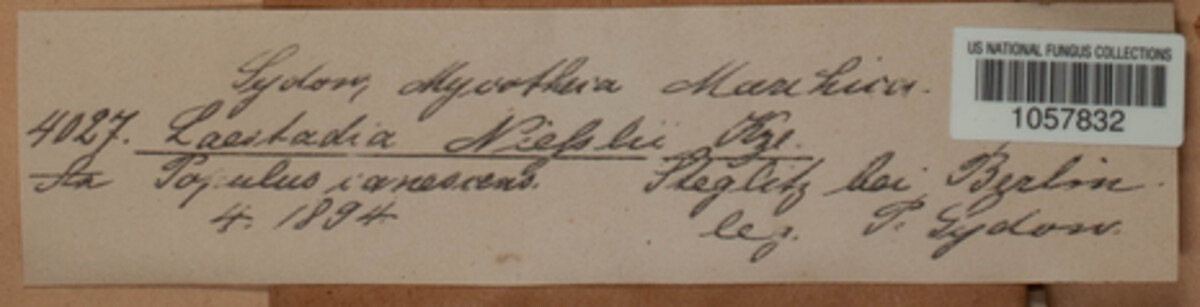 Sydow, Mycotheca Marchica.
4027. Laestadia Nießlii Kze.
An Populus canescens. Steglitz bei Berlin.
4. 1894 leg. P. Sydow.
US NATIONAL FUNGUS COLLECTIONS
1057832